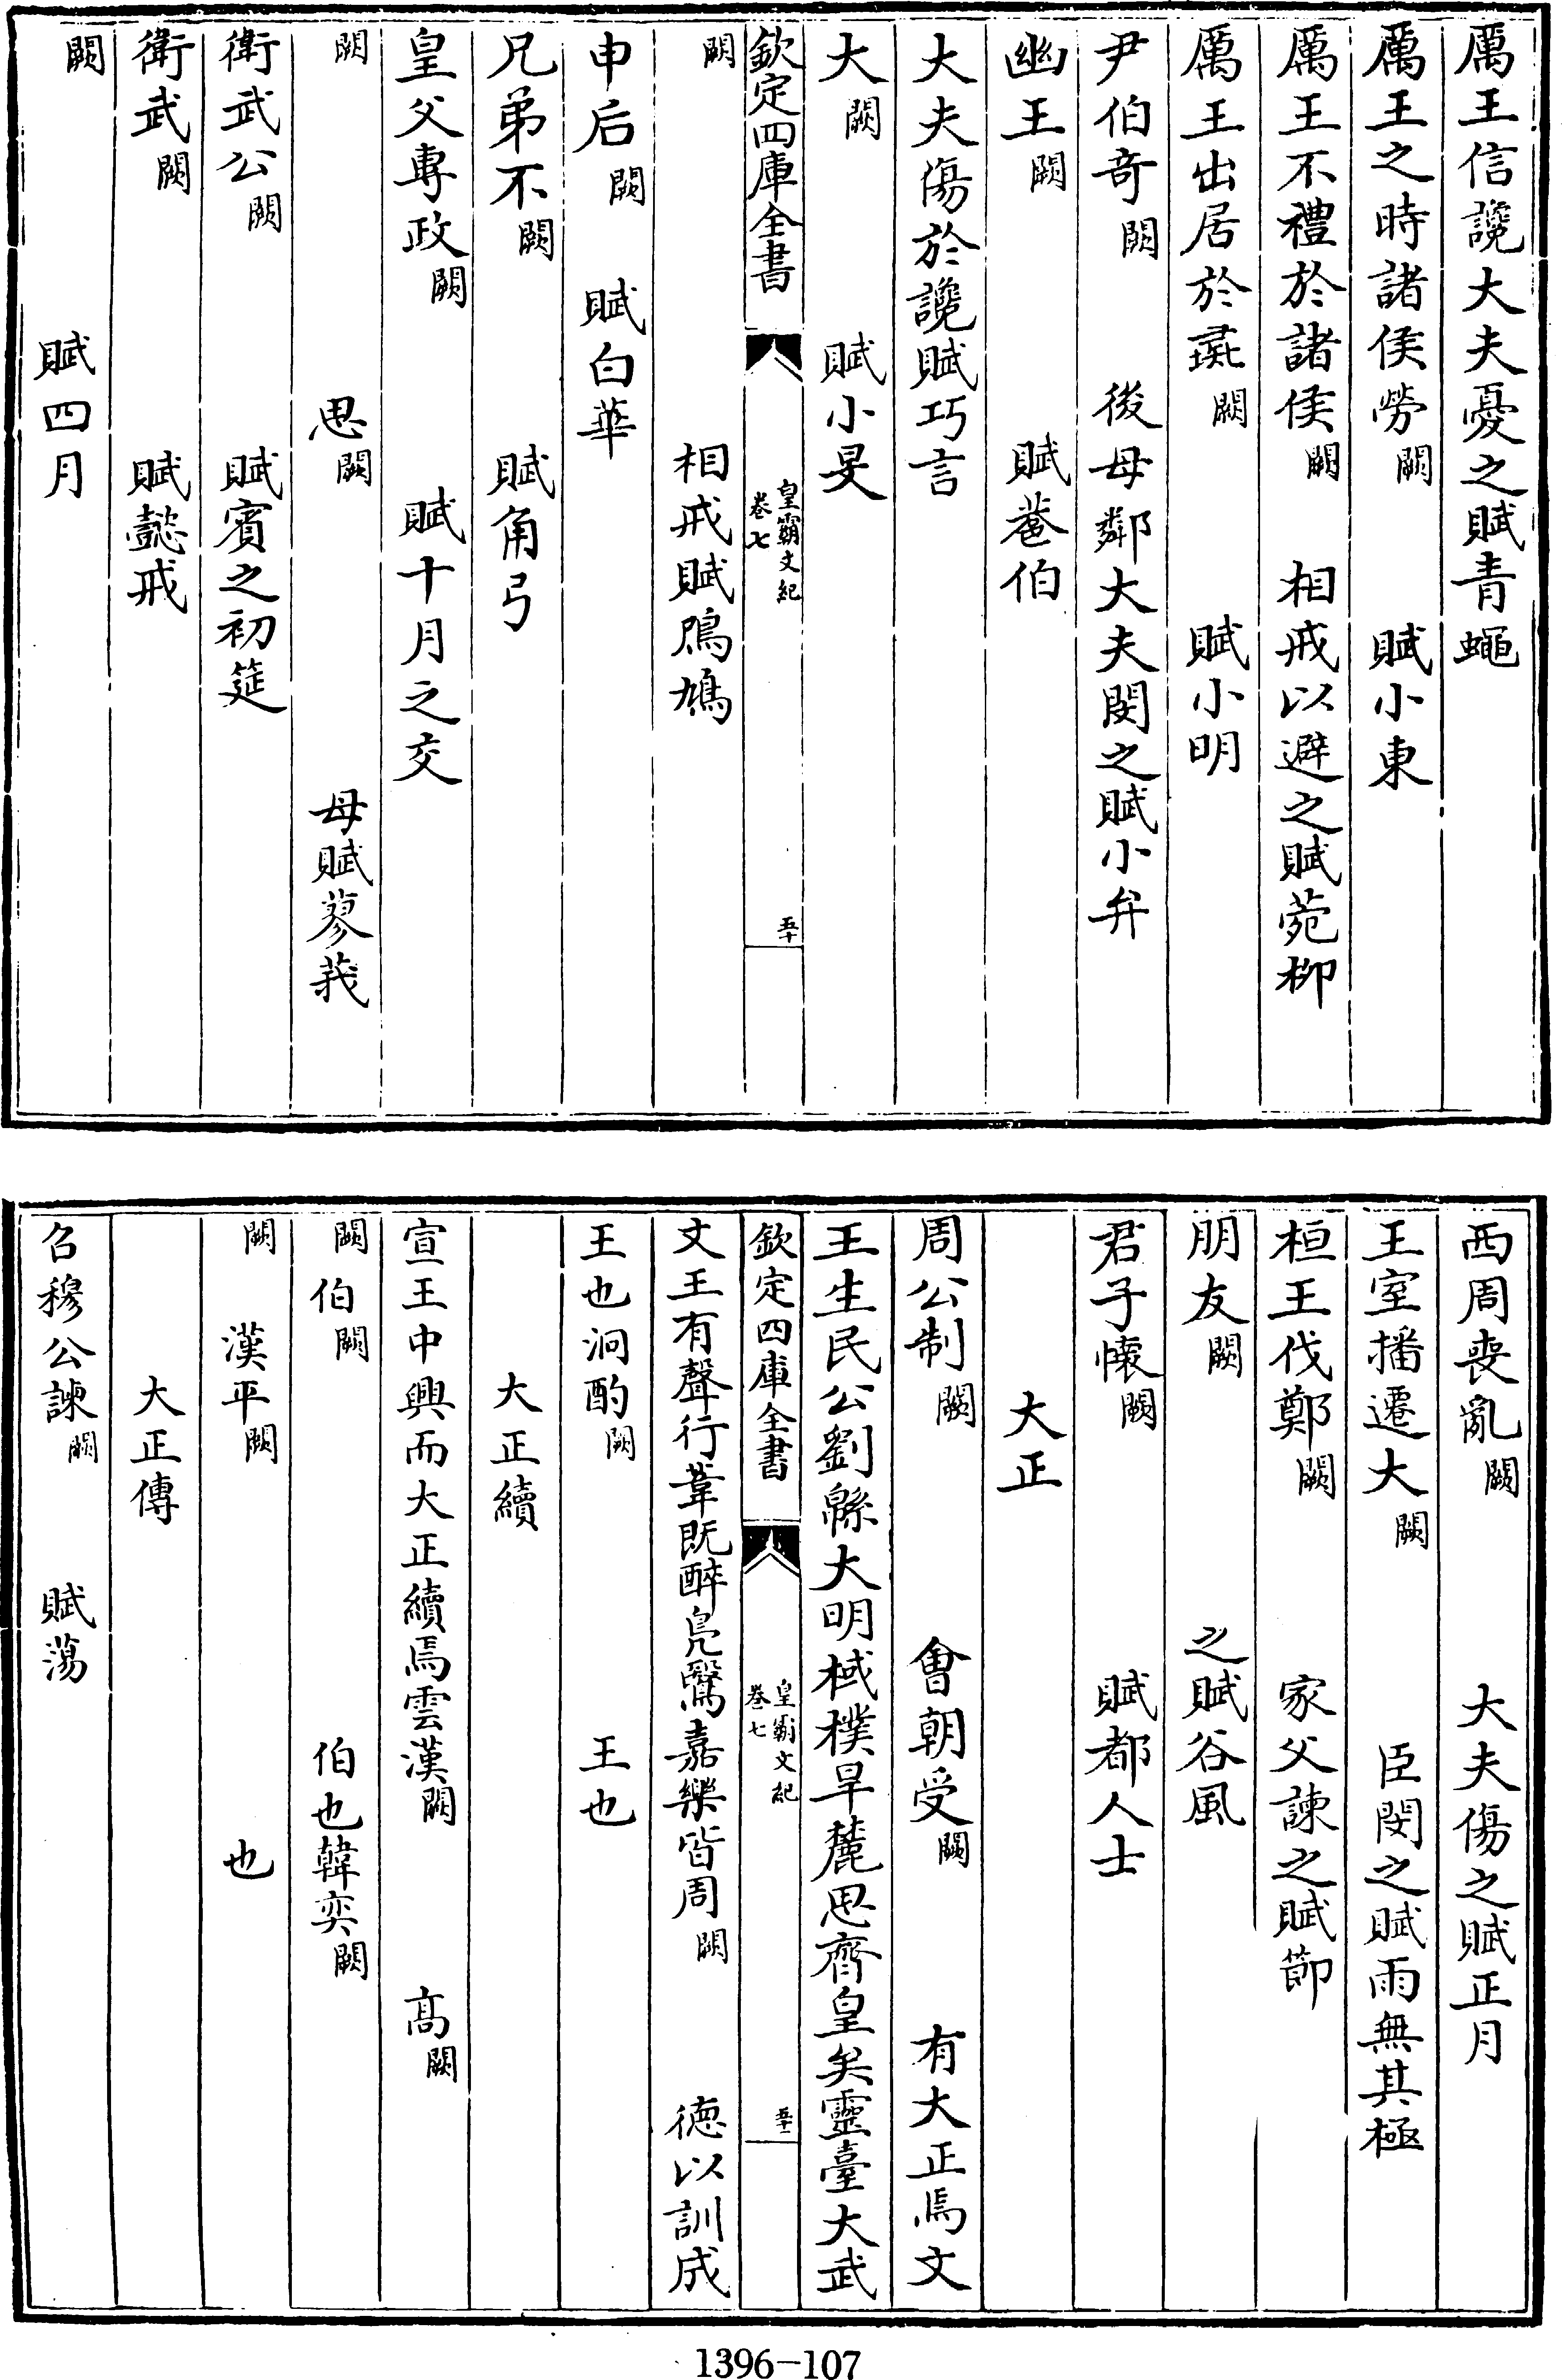 厲王信讒大夫憂之賦青蠅
厲王之時諸侯勞闕 賦小東
厲王不禮於諸侯闕 相戒以避之賦菀柳
厲王出居於彘闕 賦小明
尹伯奇闕 後母鄰大夫閔之賦小弁
幽王闕 賦巷伯
大夫傷於讒賦巧言
大闕 賦小旻
欽定四庫全書 皇霸文紀 卷七 五十
闕 相戒賦鳲鳩
申后闕 賦白華
兄弟不闕 賦角弓
皇父專政闕 賦十月之交
闕 思闕 母賦蓼莪
衛武公闕 賦賓之初筵
衛武闕 賦懿戒
闕 賦四月
西周喪亂闕 大夫傷之賦正月
王室播遷大闕 臣閔之賦雨無其極
桓王伐鄭闕 家父諫之賦節
朋友闕 之賦谷風
君子懷闕 賦都人士
大正
周公制闕 會朝受闕 有大正焉文
王生民公劉緜大明棫樸旱麓思齊皇矣靈臺大武
欽定四庫全書 皇霸文紀 卷七 五十一
文王有聲行葦既醉鳧鷖嘉樂皆周闕 德以訓成
王也泂酌闕 王也
大正續
宣王中興而大正續焉雲漢闕 高闕
闕伯闕 伯也韓奕闕
闕 漢平闕 也
大正傳
召穆公諫闕 賦蕩
1396-107